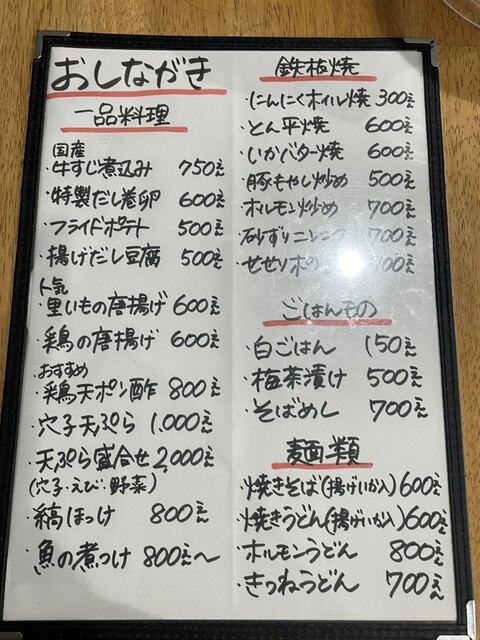 おしながき
一品料理
国産
・牛すじ煮込み 750え
・特製だし巻卵 600え
・フライドポテト 500え
・揚げだし豆腐 500え
人気
・里いもの唐揚げ 600え
・鶏の唐揚げ 600え
おすすめ
・鶏天ポン酢 800え
・穴子天ぷら 1,000え
・天ぷら盛合せ 2,000え
(穴子・えび・野菜)
・縞ほっけ 800え
・魚の煮つけ 800え〜
鉄板焼
・にんにくホイル焼 300え
・とん平焼 600え
・いかバター焼 600え
・豚もやし炒め 500え
・ホルモン炒め 700え
・砂ずりニンニク 700え
・せせりポン
ごはんもの
・白ごはん 150え
・梅茶漬け 500え
・そばめし 700え
麺類
・焼きそば(揚げいか入) 600え
・焼きうどん(揚げいか入) 600え
・ホルモンうどん 800え
・きつねうどん 700え